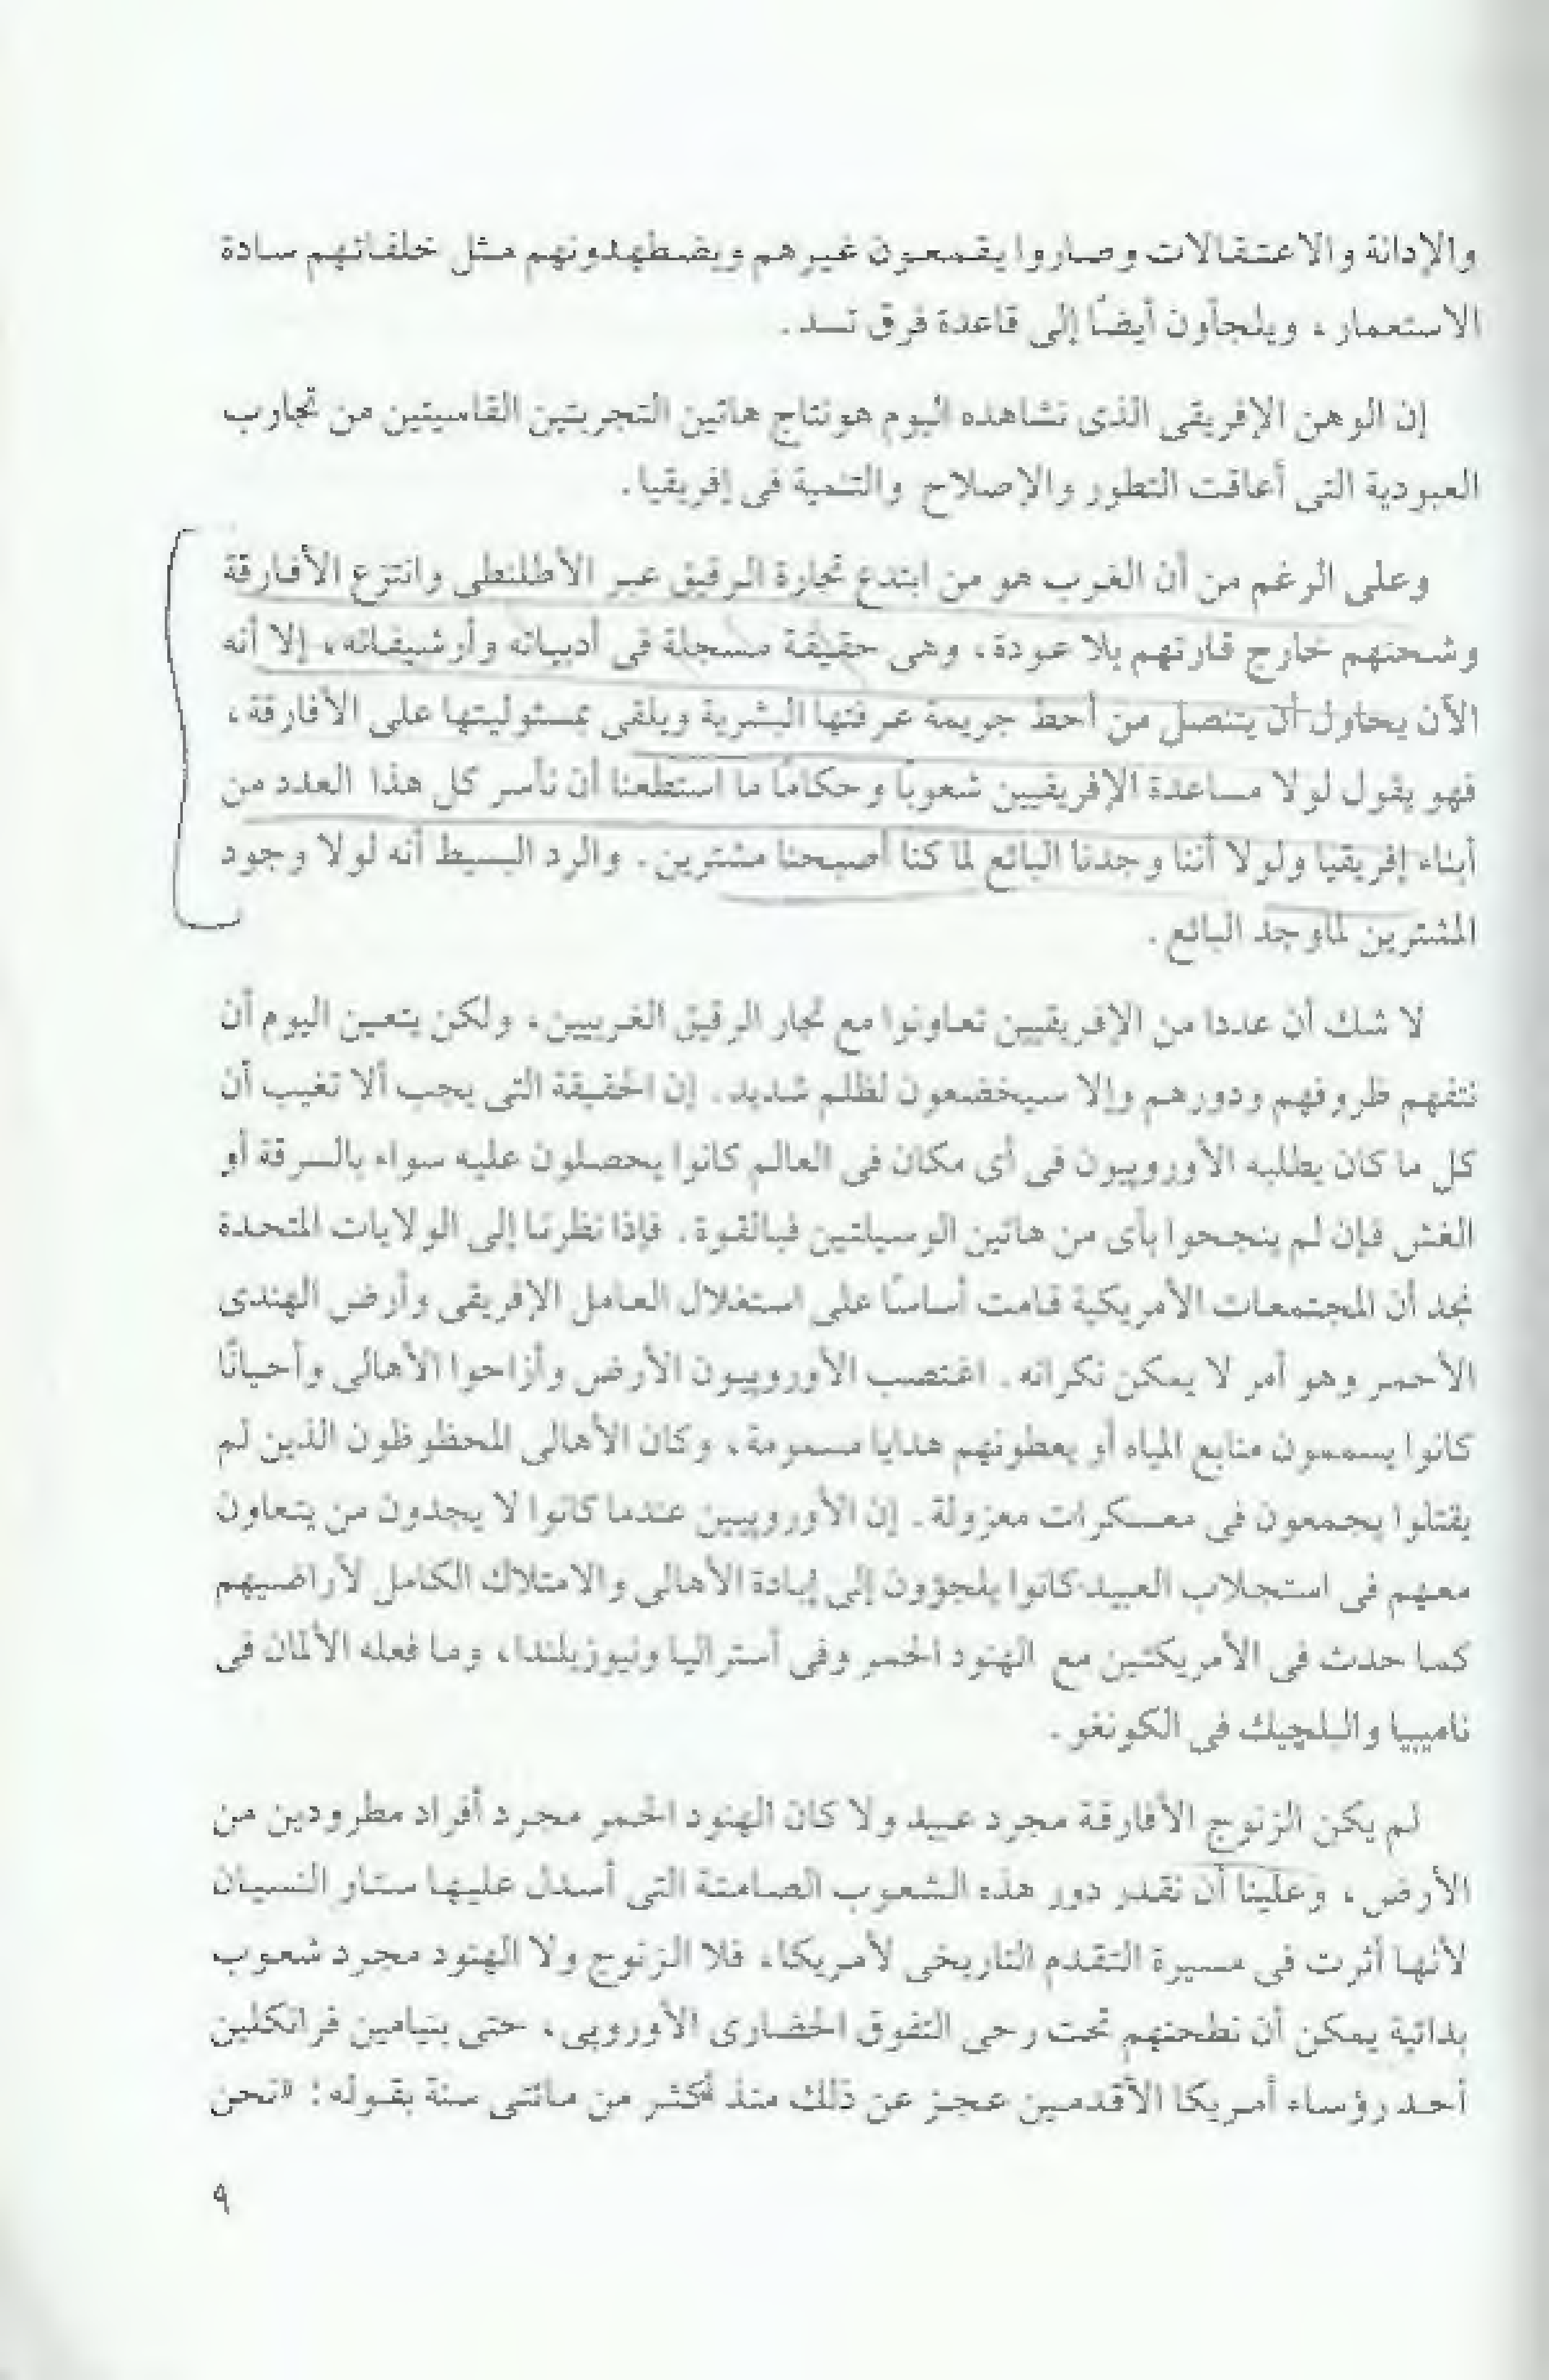 والإدانة والاعتقالات وصاروا يقمعون غيرهم ويضطهدونهم مثل خلفائهم سادة
الاستعمار، ويلجأون أيضًا إلى قاعدة فرق تسد.
إن الوهن الإفريقى الذى نشاهده اليوم هو نتاج هاتين التجربتين القاسيتين من تجارب
العبودية التى أعاقت التطور والإصلاح والتنمية فى إفريقيا.
وعلى الرغم من أن الغرب هو من ابتدع تجارة الرقيق عبر الأطلنطى وانتزع الأفارقة
وشحنهم خارج قارتهم بلا عودة، وهى حقيقة مسجلة فى أدبياته وأرشيفاته، إلا أنه
الآن يحاول أن يتنصل من أحط جريمة عرفتها البشرية ويلقى بمسئوليتها على الأفارقة،
فهو يقول لولا مساعدة الإفريقيين شعوبًا وحكامًا ما استطعنا أن نأسر كل هذا العدد من
أبناء إفريقيا ولولا أننا وجدنا البائع لما كنا أصبحنا مشترين. والرد البسيط أنه لولا وجود
المشترين لما وجد البائع.
لا شك أن عددا من الإفريقيين تعاونوا مع تجار الرقيق الغربيين، ولكن يتعين اليوم أن
نتفهم ظروفهم ودورهم وإلا سيخضعون لظلم شديد. إن الحقيقة التى يجب ألا تغيب أن
كل ما كان يطلبه الأوروپيون فى أى مكان فى العالم كانوا يحصلون عليه سواء بالسرقة أو
الغش فإن لم ينجحوا بأى من هاتين الوسيلتين فبالقوة. فإذا نظرنا إلى الولايات المتحدة
نجد أن المجتمعات الأمريكية قامت أساسًا على استغلال العامل الإفريقى وأرض الهندى
الأحمر وهو أمر لا يمكن نكرانه. اغتصب الأوروپيون الأرض وأزاحوا الأهالى وأحيانًا
كانوا يسممون منابع المياه أو يعطونهم هدايا مسمومة، وكان الأهالى المحظوظون الذين لم
يقتلوا يجمعون فى معسكرات معزولة. إن الأوروپيين عندما كانوا لا يجدون من يتعاون
معهم فى استجلاب العبيد كانوا يلجؤون إلى إبادة الأهالى والامتلاك الكامل لأراضيهم
كما حدث فى الأمريكتين مع الهنود الحمر وفى أستراليا ونيوزيلندا، وما فعله الألمان فى
ناميبيا والبلچيك فى الكونغو.
لم يكن الزنوج الأفارقة مجرد عبيد ولا كان الهنود الحمر مجرد أفراد مطرودين من
الأرض، وعلينا أن نقدر دور هذه الشعوب الصامتة التى أسدل عليها ستار النسيان
لأنها أثرت فى مسيرة التقدم التاريخى لأمريكا، فلا الزنوج ولا الهنود مجرد شعوب
بدائية يمكن أن نطحنهم تحت رحى التفوق الحضارى الأوروپى، حتى بنيامين فرانكلين
أحد رؤساء أمريكا الأقدمين عجز عن ذلك منذ أكثر من مائتى سنة بقوله: «نحن
٩